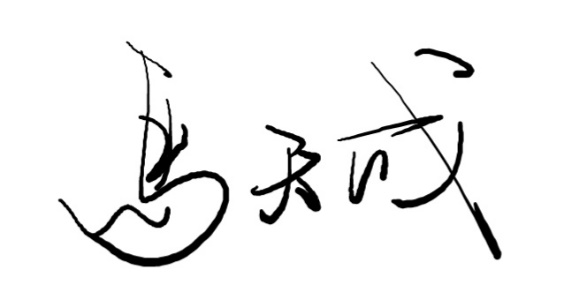 馬天成